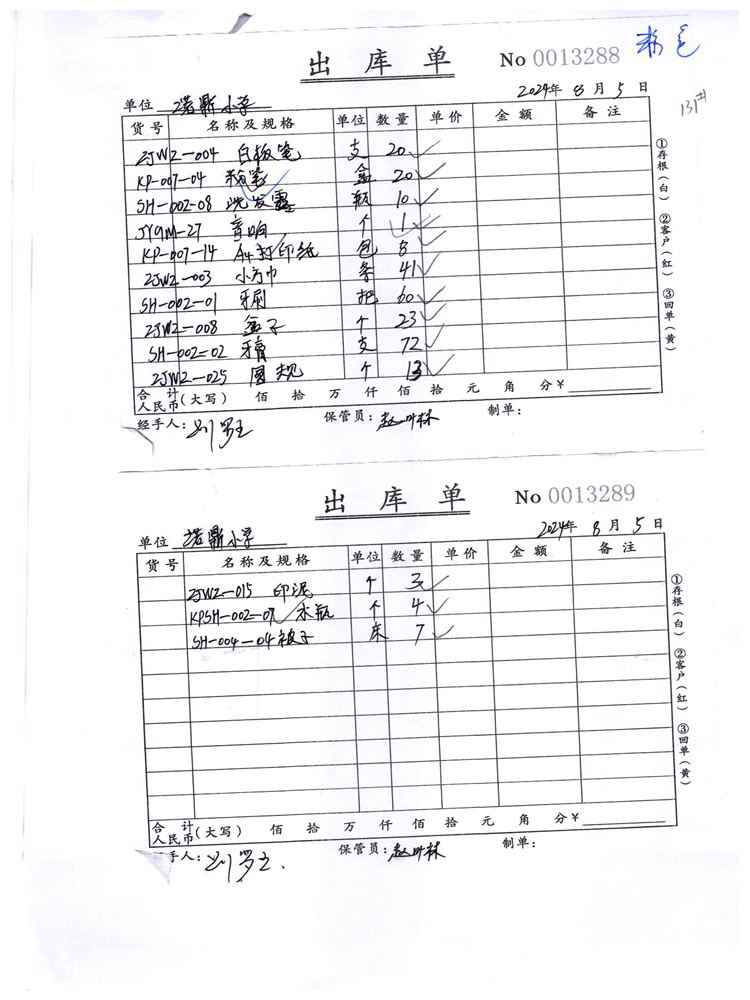 出库单 No 0013288
2024年 8月 5日
单位 塔鼎小学
货号 名称及规格 单位 数量 单价 金额 备注
ZJWZ-004 白板笔 支 20
KP-007-04 粉笔 盒 20
SH-002-08 洗发露 瓶 10
JYQM-27 音响 个 1
KP-007-14 A4打印纸 包 8
ZJWZ-003 小方巾 条 41
SH-002-01 牙刷 把 60
ZJWZ-008 盒子 个 23
SH-002-02 牙膏 支 72
ZJWZ-025 圆规 个 13
合计人民币(大写) 佰 拾 万 仟 佰 拾 元 角 分 ¥
经手人: 保管员: 制单:
①存根(白) ②客户(红) ③回单(黄)
出库单 No 0013289
2024年 8月 5日
单位 塔鼎小学
货号 名称及规格 单位 数量 单价 金额 备注
ZJWZ-015 印泥 个 3
KPSH-002-07 水瓶 个 4
SH-004-04 被子 床 7
合计人民币(大写) 佰 拾 万 仟 佰 拾 元 角 分 ¥
手人: 保管员: 制单:
①存根(白) ②客户(红) ③回单(黄)